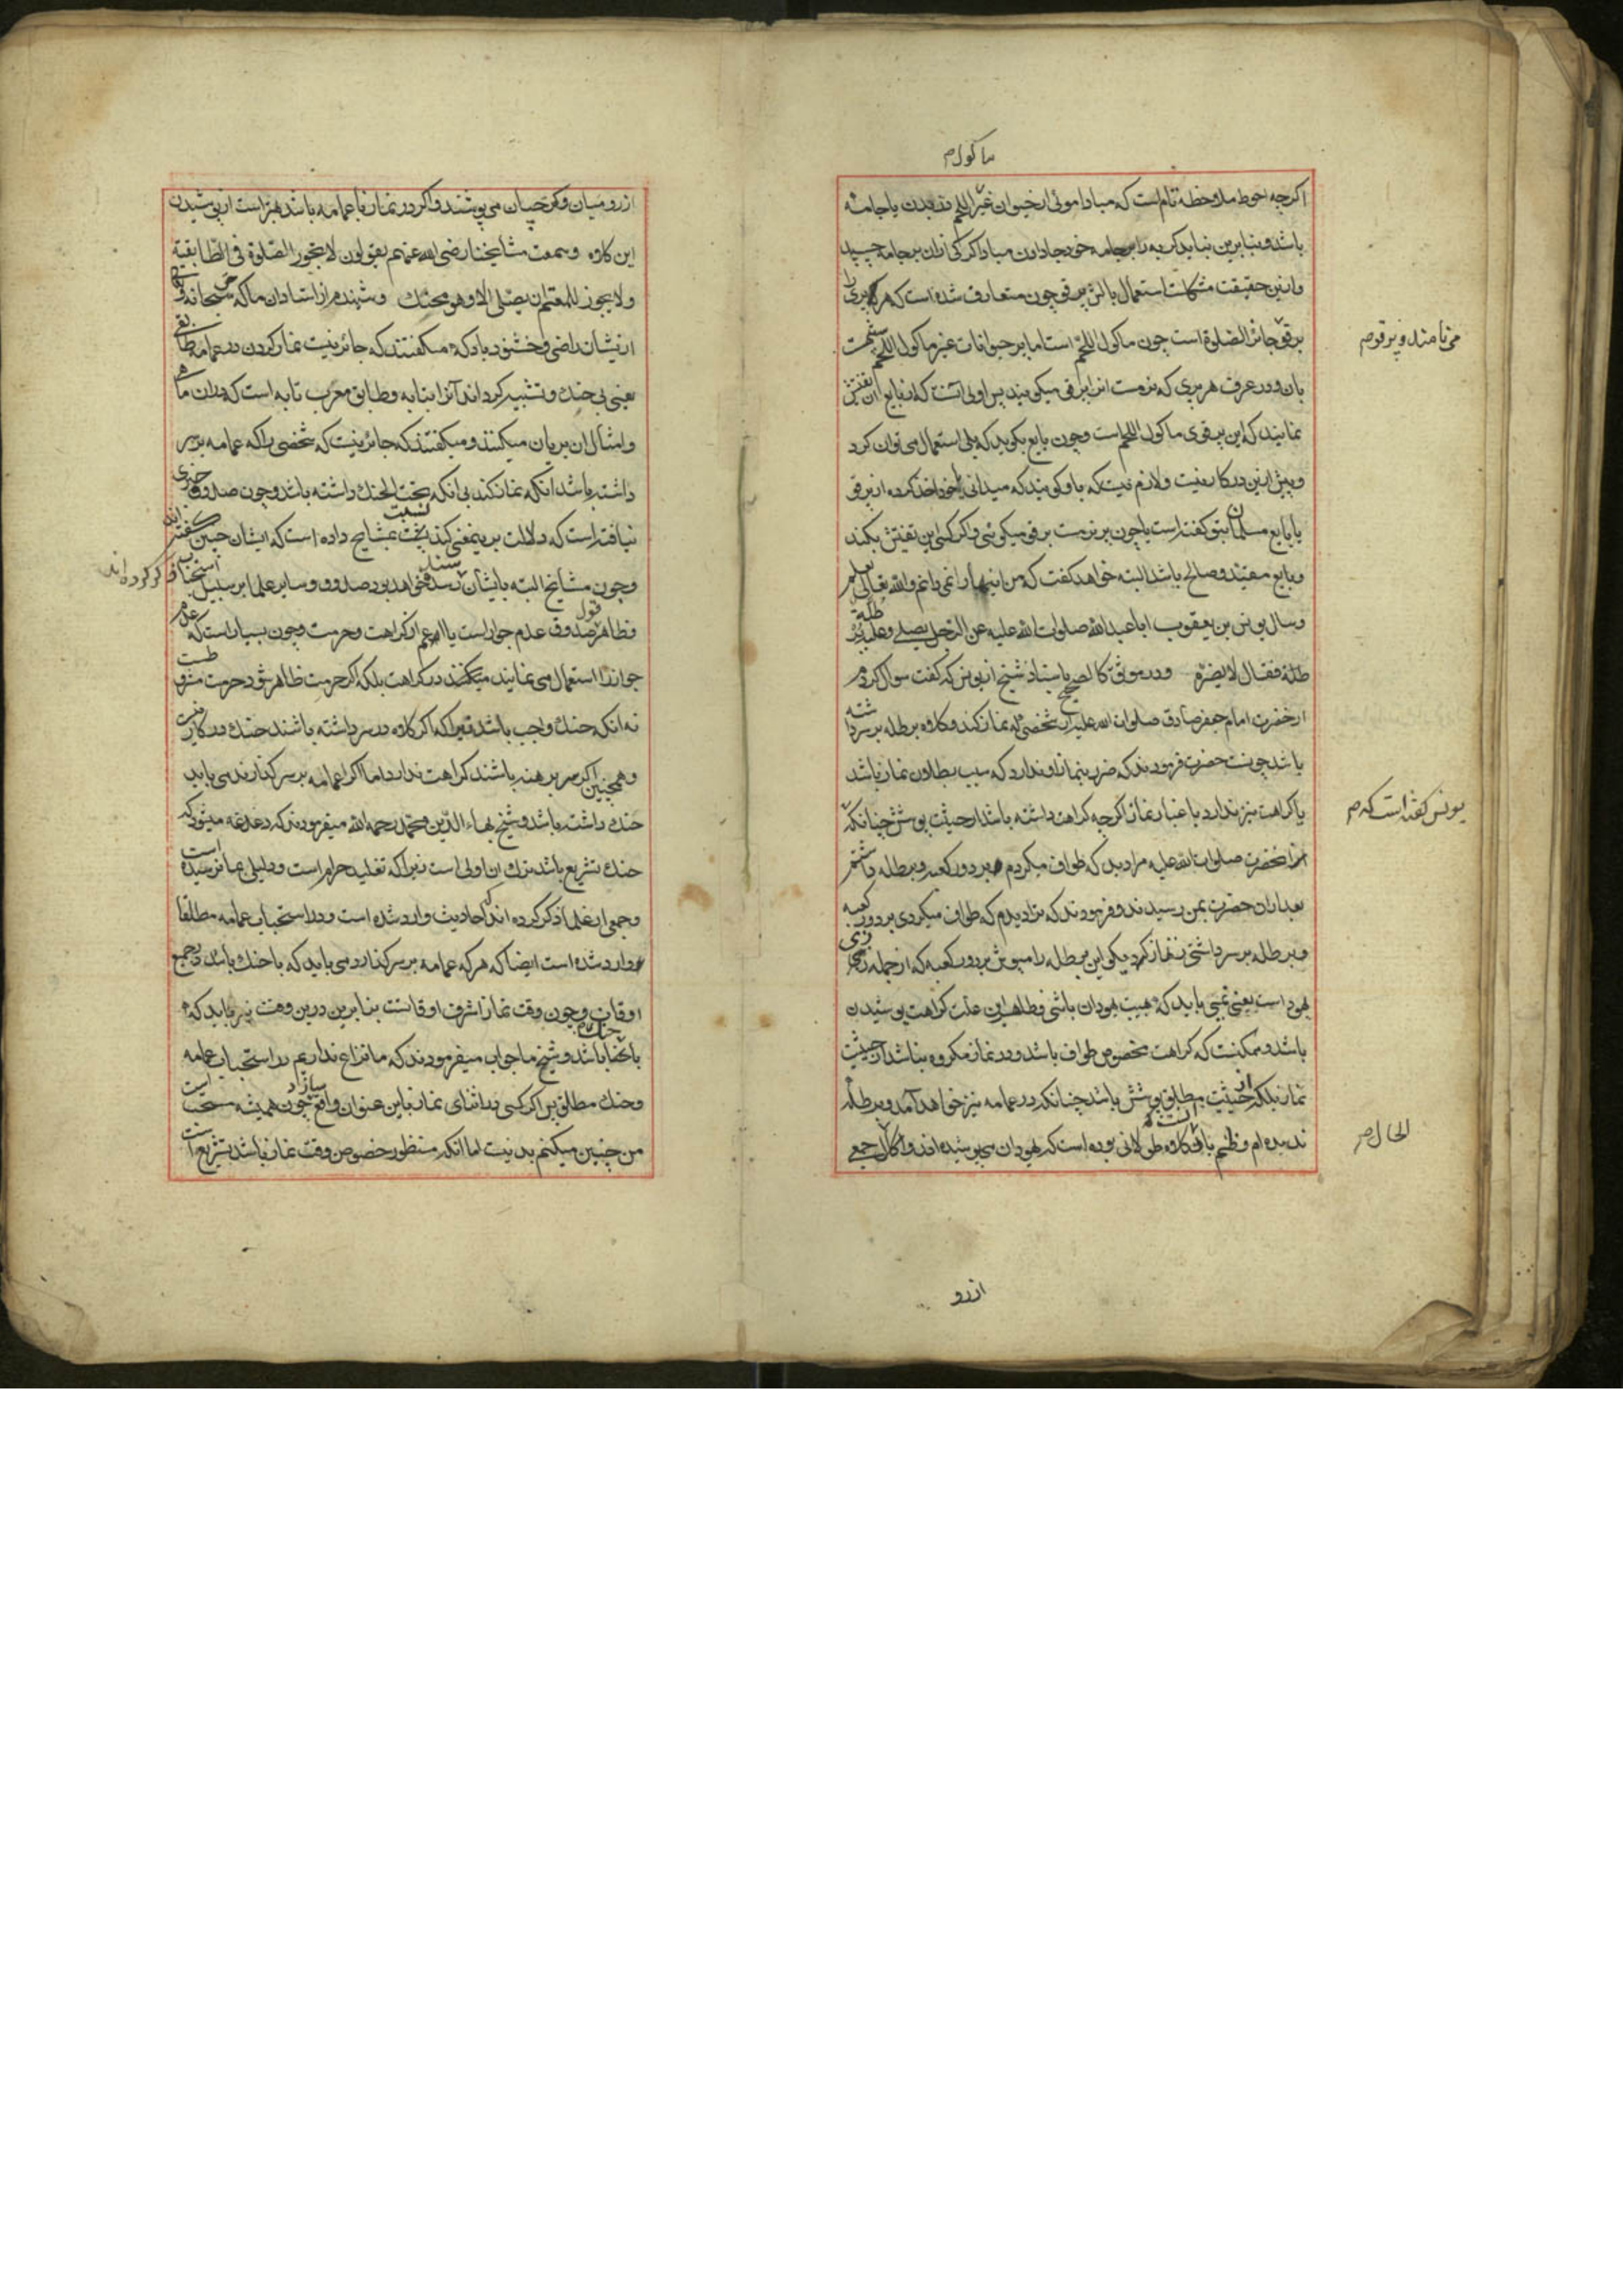 ماکول م
اکرچه احوط ملاحظه تام است که مبادا موئی از حیوان غیر اللحم در بدن یا جامه
باشد و بنابرین نباید کربه را بر جامه خود جا دادن مبادا کرکی از ان بر جامه چسپد
و ازین حقیقت مشکلست استعمال بالش پر قو چون متعارف شده است که هر پری را
پر قو جائز الصلوة است چون ماکول اللحم است اما پر حیوانات غیر ماکول اللحم
بان و در عرف هر پری که نرمست انرا پر قو میکویند پس اولی آنست که از بایع ان تفتیش
نمایند که این پر قوی ماکول اللحم است و چون بایع بکوید که بلی استعمال می توان کرد
و پیش ازین در کار نیست و لازم نیست که باو کویند که میدانی خود اخذ کرده از پر قو
یا بایع مسلمان بتو کفته است یا چون پر نرمست پر قو میکوئی و اکر کسی این تفتیش بکند
و بایع مقید و صالح باشد البته خواهد کفت که من اینها را نمی دانم والله تعالی یعلم
و سال یونس بن یعقوب ابا عبدالله صلوات الله علیه عن الرجل یصلی و علیه برطلة
طلة فقال لا یضره و در موثق کالصحیح باسناد شیخ از یونس که کفت سوال کردم
از حضرت امام جعفر صادق صلوات الله علیه از شخصی که نماز کند و کلاه برطله بر سر داشته
باشد چونست حضرت فرمودند که ضرر بنماز او ندارد که سبب بطلان نماز باشد
یا کراهت نیز ندارد باعتبار نماز اکرچه کراهت داشته باشد از حیثت پوشش چنانکه
انحضرت صلوات الله علیه مرا دید که طواف میکردم بر دور کعبه و برطله داشتم
بعد از ان حضرت بمن رسیدند و فرمودند که ترا دیدم که طواف میکردی بر دور کعبه
و برطله بر سر داشتی نماز دیکر این برطله را مپوش بر دور کعبه که از جمله زی
یهود است یعنی نمی باید که بهیت یهودان باشی و ظاهر این علت کراهت پوشیدن
باشد و ممکنست که کراهت مخصوص طواف باشد و در نماز مکروه نباشد از حیثت
نماز بلکه از حیثت مطلق پوشش باشد چنانکه در عمامه نیز خواهد آمد و برطله
ندیده ام و ظنم انست که کلاه طولانی بوده است که یهودان می پوشیده اند و اکال جمعی
می نامند و پر قو م
یونس کفته است که م
الحال م
ازرو
ازرو میان و کرجیان می پوشند و اکر در نماز با عمامه باشد بهتر است از پوشیدن
این کلاه و سمعت مشایخنا رضی الله عنهم یقولون لا یجوز الصلوة فی الطابقیة
ولا یجوز للمعتم ان یصلی الا وهو محنک و شنیدم از استادان ما که حق سبحانه و تعالی
ازیشان راضی و خشنود باد که میکفتند که جائز نیست نماز کردن در عمامه طابقی
یعنی بی حنک و تشبیه کرده اند آنرا بتابه و طابق معرب تابه است که در ان ماهی
و امثال ان بریان میکنند و میکفتند که جائز نیست که شخصی را که عمامه بر سر
داشته باشد انکه نماز کند بی انکه تحت الحنک داشته باشد و چون صدوق خبری
نیافته است که دلالت برین معنی کند نسبت بمشایخ داده است که ایشان چنین کفته اند
و چون مشایخ البته بایشان سند خواهد بود صدوق و سایر علما بر سبیل استحباب ذکر کرده اند
و ظاهر قول صدوق عدم جواز است یا اعم از کراهت و حرمت و چون بسیار است که عدم
جواز را استعمال می نمایند میکنند در کراهت بلکه اکر حرمت ظاهر شود حرمت مشروطست
نه انکه حنک واجب باشد زیرا که اکر کلاه در سر داشته باشند حنک در کار نیست
و همچنین اکر سر برهنه باشند کراهت ندارد اما اکر عمامه بر سر کذارند می باید
حنک داشته باشد و شیخ بهاء الدین محمد رحمه الله میفرمودند که دغدغه میشود که
حنک تشریع باشد ترک ان اولی است زیرا که تقلید حرام است و دلیلی بما نرسیده است
و جمعی از علما ذکر کرده اند که احادیث وارد شده است و در استحباب عمامه مطلقا
وارد شده است ایضا که هر که عمامه بر سر کذارد می باید که با حنک باشد در جمیع
اوقات و چون وقت نماز اشرف اوقاتست بنابرین درین وقت نیز باید که
با حنک باشد و شیخ ما جواب میفرمودند که ما نزاع نداریم در استحباب عمامه
و حنک مطلق پس اکر کسی در اثنای نماز باین عنوان واقع سازد چون همیشه مستحب است
من چنین میکنم بد نیست اما انکه منظور خصوص وقت نماز باشد تشریع است